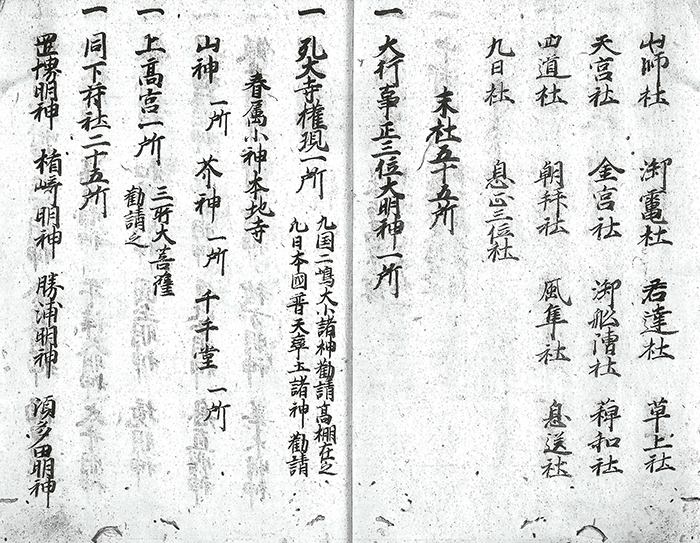 山師社 君達社 草上社
天宮社 金宮社 御船漕社 蒋和社
四道社 朝拜社 風隼社 息送社
九日社 息正三位社
末社五十五所
一 大行事正三位大明神一所
一 孔大寺權現一所
九国二嶋大小諸神勧請髙棚在之
九日本國普天率土諸神勧請
眷属小神本地寺
山神 一所 芥神 一所 千手堂 一所
一 上髙宮一所
三所大菩薩
勧請之
一 同下符社二十五所
明神 楯崎明神 勝浦明神 須多田明神